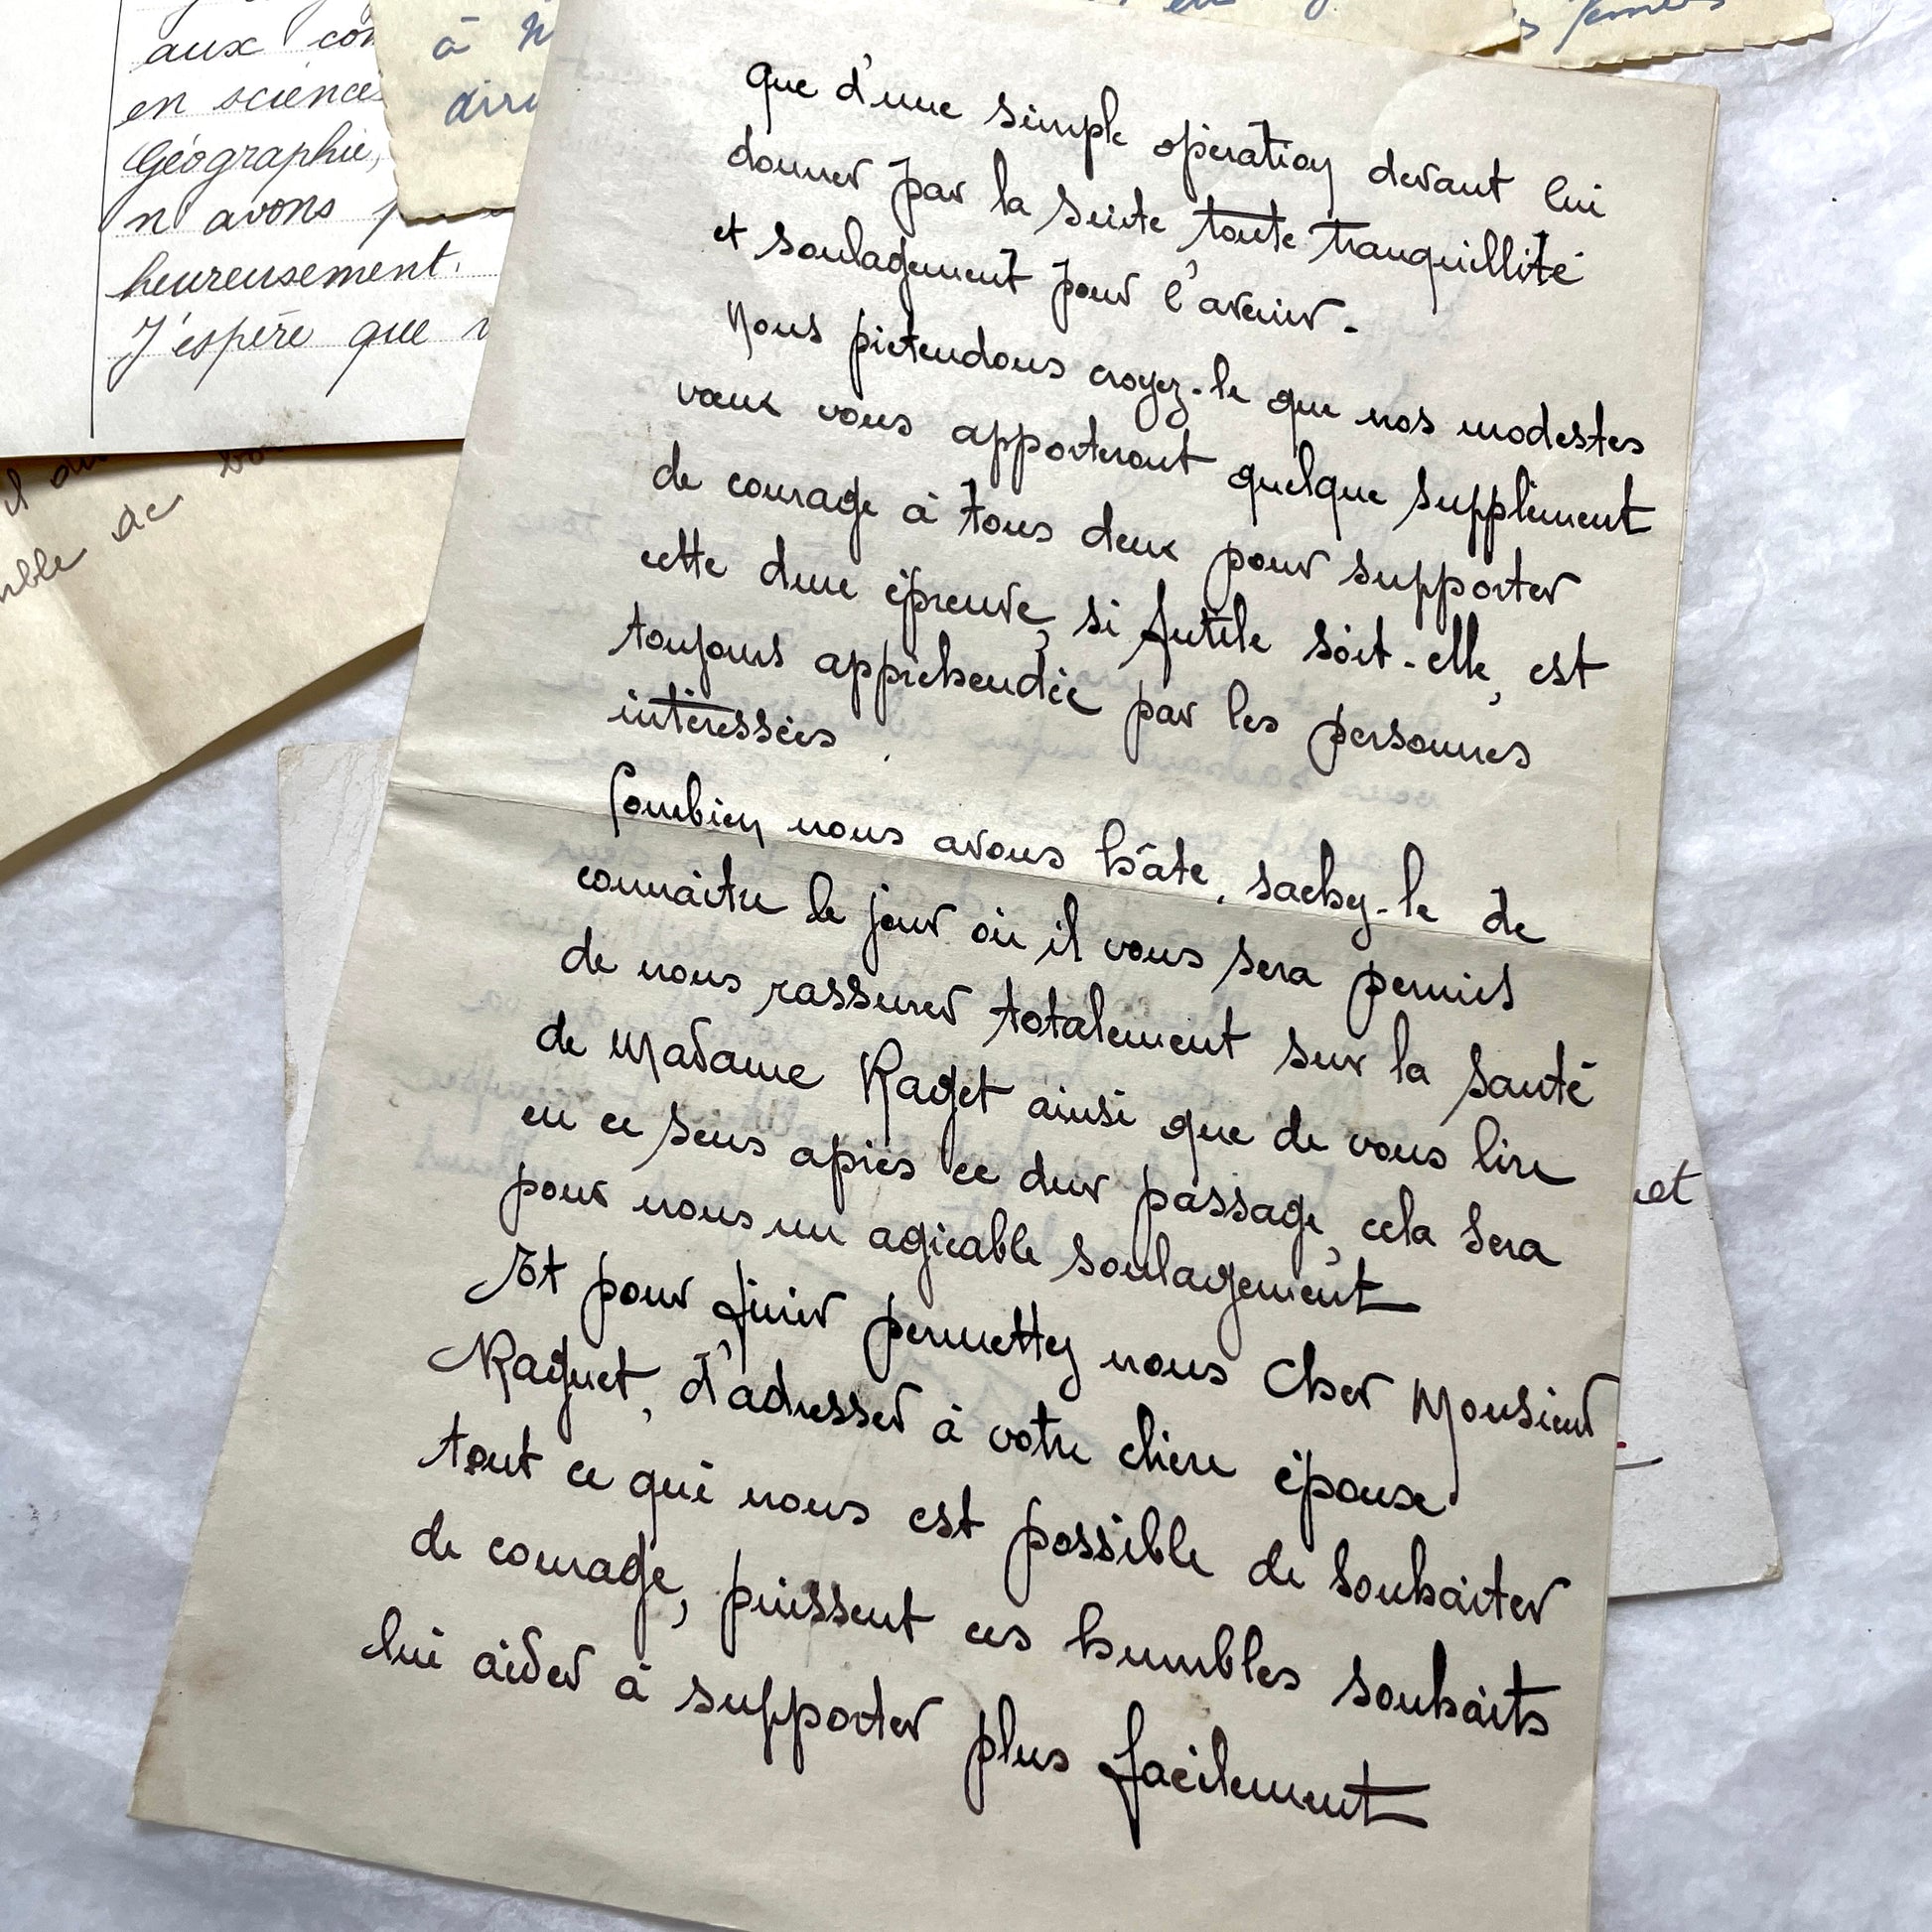 aux
en science
Géographie,
n'avons
heureusement.
J'espère que
à
que d'une simple opération devant lui
donner par la suite toute tranquillité
et soulagement pour l'avenir.
Nous prétendons croyez-le que nos modestes
vœux vous apporteront quelque supplément
de courage à tous deux pour supporter
cette dure épreuve, si futile soit-elle, est
toujours appréhendée par les personnes
intéressées.
Combien nous avons hâte, sachez-le de
connaître le jour où il vous sera permis
de nous rassurer totalement sur la santé
de Madame Raget ainsi que de vous lire
en ce sens après ce dur passage, cela sera
pour nous un agréable soulagement
Et pour finir permettez nous Cher Monsieur
Raguet, d'adresser à votre chère épouse
tout ce qui nous est possible de souhaiter
de courage, puissent ces humbles souhaits
lui aider à supporter plus facilement
il
de
et